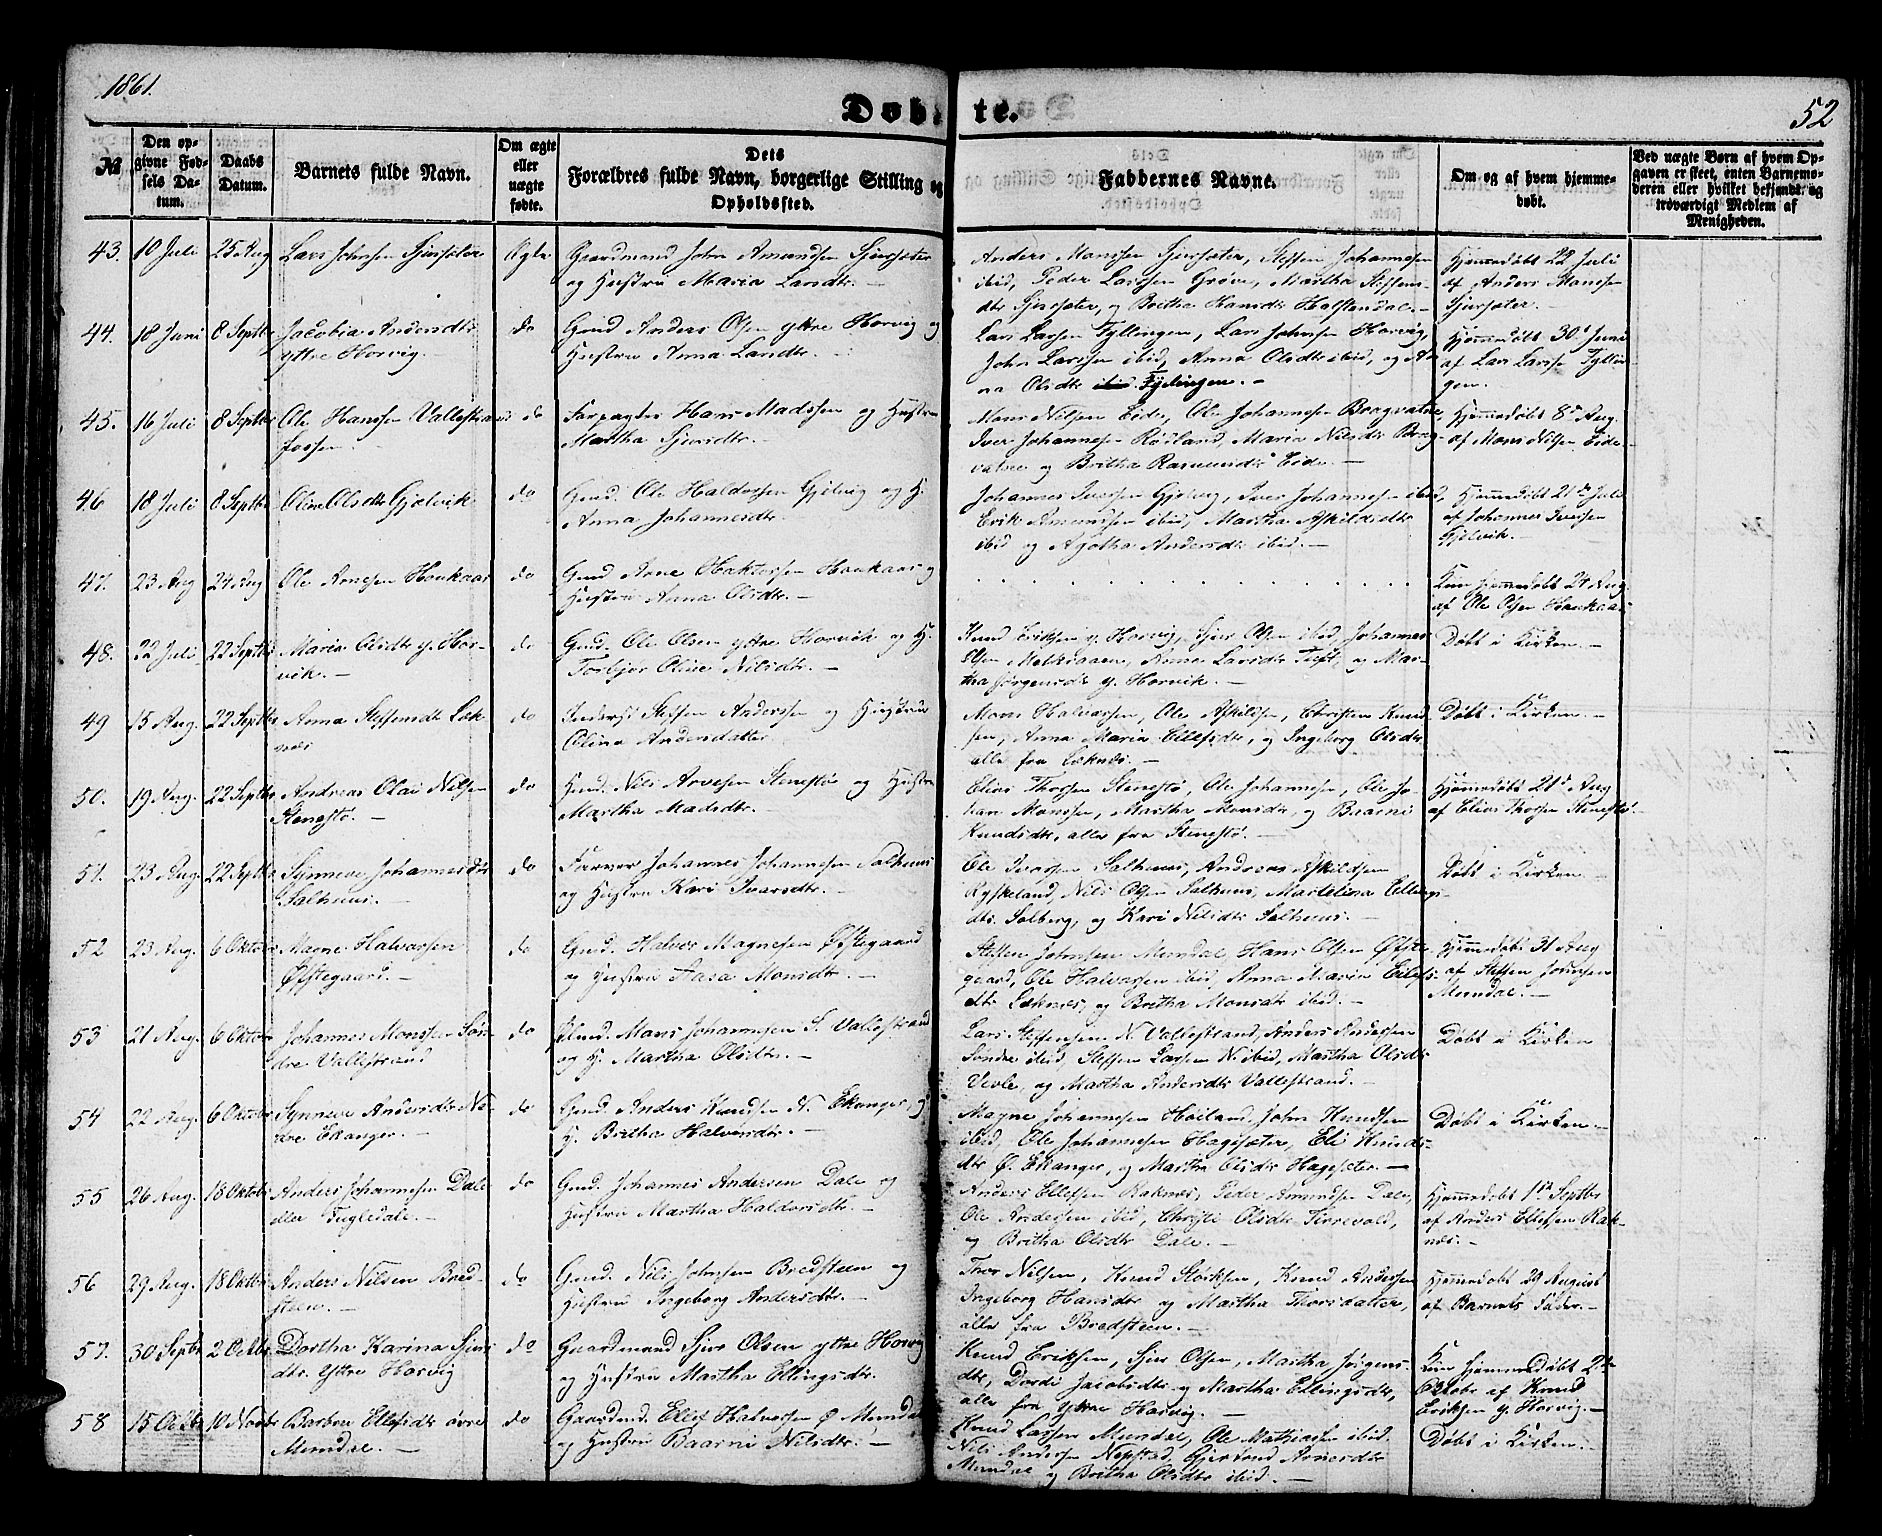 1861.
Døbte.
52
№
Den opgivne Fødsels Datum.
Daabs Datum.
Barnets fulde Navn.
Om ægte eller uægte fødte.
Dets Forældres fulde Navn, borgerlige Stilling og Opholdssted.
Faddernes Navne.
Om og af hvem hjemmedøbt.
Ved uægte Børn af hvem Opgaven er skeet, enten Barnemoderen eller hvilket bekjendt og troværdigt Medlem af Menigheden.
43. 10 Juli 25 Aug Lars Johnsen Sjursæter Ægte Gaardmand John Amundsen Sjursæter
og Hustru Maria Larsdtr. —
Anders Monssen Sjursæter, Steffen Johannesen
ibid, Peder Larssen Grøen, Martha Steffens-
dtr Sjursæter, og Britha Hansdtr Halstendal. —
Hjemmedøbt 22 Juli
af Anders Monssen
Sjursæter.
44. 18 Juni 8 Septbr Jacobia Andersdtr
yttre Horvig.
do Gmd Anders Olsen yttre Horvig og
Hustru Anna Larsdtr. —
Lars Larssen Tyllingen, Lars Johnsen Horvig,
John Larssen ibid, Anna Olsdtr ibid, og An-
na Olsdtr Tyslingen. —
Hjemmedøbt 30 Juni
af Lars Larssen Tyllin-
gen.
45. 16 Juli 8 Septbr Ole Hanssen Vallestrand
fossen.
do Forpagter Hans Madssen og Hustru
Martha Sjursdtr. —
Mons Nilsen Eide, Ole Johannesen Borgvatne,
Iver Johannesen Røiland, Maria Nilsdtr Borg-
vatne og Britha Rasmusdtr Eide. —
Hjemmedøbt 8d Aug.
af Mons Nilsen Eide. —
46 18 Juli 8 Septbr Oline Olsdtr Gjelvik
do Gmd. Ole Haldorsen Gjelvig og H.
Anna Johannesdtr.
Johannes Iversen Gjelvig, Iver Johannesen ibid,
Erik Amundsen ibid, Martha Askildsdtr
ibid og Agatha Andersdtr ibid. —
Hjemmedøbt 21de Juli
af Johannes Iversen
Gjelvik.
47. 23 Aug 24 Aug Ole Arnesen Haukaas
do Gmd Arne Haktorsen Haukaas og
Hustru Anna Olsdtr. —
Kun hjemmedøbt 24 Aug.
af Ole Olsen Haukaas
48. 22 Juli 22 Septbr Maria Olsdtr y. Hor-
vik. —
do Gmd. Ole Olsen yttre Horvik og H.
Torbjor Oline Nilsdtr. —
Knud Eriksen y. Horvig, Sjur Olsen ibid, Johannes
Olsen Melkeraaen, Anna Larsdtr Tveit, og Mar-
tha Jørgensdtr y. Horvik. —
Døbt i Kirken. —
49 15 Aug. 22 Septbr Anna Steffensdtr Læk-
næs
do Inderst Steffen Anderssen og Hustru
Olina Andersdatter
Mons Halvorsen, Ole Askildsen, Christen Knud-
sen, Anna Maria Ellefsdtr, og Ingeborg Olsdtr
alle fra Læknæs. —
Døbt i Kirken. —
50. 19 Aug. 22 Septbr Andreas Olai Nilsen
Stenestø. —
do Hmd. Nils Arnesen Stenestø og Hustru
Martha Madsdtr. —
Elias Thorsen Stenestø, Ole Johannesen, Ole Jo-
han Monsen, Martha Monsdtr, og Baarni
Knudsdtr, alle fra Stenestø. —
Hjemmedøbt 21d Aug
af Elias Thorsen Stenestø.
51. 23 Aug. 22 Septbr Synneve Johannesdtr
Salhuus. —
do Farver Johannes Johannesen Salhuus
og Hustru Kari Ivarsdtr. —
Ole Iverssen Salhuus, Andreas Askildsen
Ryskeland, Nils Olsen Salhuus, Martelina Ellings-
dtr. Solberg, og Kari Nilsdtr Salhuus. —
Døbt i Kirken. —
52 23 Aug. 6 Oktobr Magne Halvorsen
Øfstegaard. —
do Gmd. Halvor Magnesen Øfstegaard
og Hustru Sara Monsdtr. —
Steffen Johnsen Mundal, Hans Olsen Øfste-
gaard, Ole Halvorsen ibid, Anna Maria Eilefs-
dtr Læknæs, og Britha Monsdtr ibid. —
Hjemmedøbt 31 Aug
af Steffen Johnsen
Mundal. —
53 21 Aug. 6 Oktobr Johannes Monssen Søn-
dre Vallestrand
do Gmd. Mons Johannesen S. Vallestrand
og H. Martha Olsdtr. —
Lars Steffensen N. Vallestrand, Anders Andersen
Søndre ibid, Steffen Larsen N. ibid, Martha Olsdtr
Vevle, og Martha Andersdtr Vallestrand. —
Døbt i Kirken
54 22 Aug. 6 Oktobr Synneve Andersdtr Ne-
dre Ekanger. —
do Gmd. Anders Knudsen N. Ekanger, og
H. Britha Halvorsdtr. —
Magne Johannesen Høiland, John Knudsen
ibid, Ole Johannesen Hagesæter, Eli Knuds-
dtr Ø. Ekanger, og Martha Olsdtr Hagesæter. —
Døbt i Kirken. —
55 26 Aug. 18 Oktobr Anders Johannesen Dale
eller Fugledale. —
do Gmd. Johannes Andersen Dale og
Hustru Martha Haldorsdtr. —
Anders Ellefsen Raknes, Peder Amundsen Dale,
Ole Andersen ibid, Christi Olsdtr Tirrevold,
og Britha Olsdtr Dale. —
Hjemmedøbt 1ste Septbr
af Anders Ellefsen Rak-
næs. —
56 29 Aug. 18 Oktbr Anders Nilsen Bred-
steen. —
do Gmd. Nils Johnsen Bredsteen og
Hustru Ingeborg Andersdtr. —
Thor Nilsen, Knud Størksen, Knud Andersen
Ingeborg Hansdtr og Martha Thorsdatter,
alle fra Bredsteen. —
Hjemmedøbt 29 August
af Barnets Fader. —
57. 30 Septbr 2 Octbr. Dortha Karina Sjurs
dtr. Yttre Horvig
do Gaardmand Sjur Olsen yttre Horvig
og Hustru Martha Ellingsdtr.
Knud Eriksen, Sjur Olsen, Martha Jørgens-
dtr, Dordi Jacobsdtr og Martha Ellingsdtr,
alle fra Yttre Horvig. —
Kun hjemmedøbt 2de
Octobr af Knud
Eriksen y. Horvig. —
58 15 Octbr 10 Novbr Barbru Ellefsdtr øvre
Mundal. —
do Gaardmd. Elief Halvorssen Ø Mundal
og Hustru Baarni Nilsdtr. —
Knud Larssen Mundal, Ole Mathiassen ibid.
Nils Andersen Nepstad, Gjertrud Arnesdtr
Mundal og Britha Olsdtr ibid. —
Døbt i Kirken. —